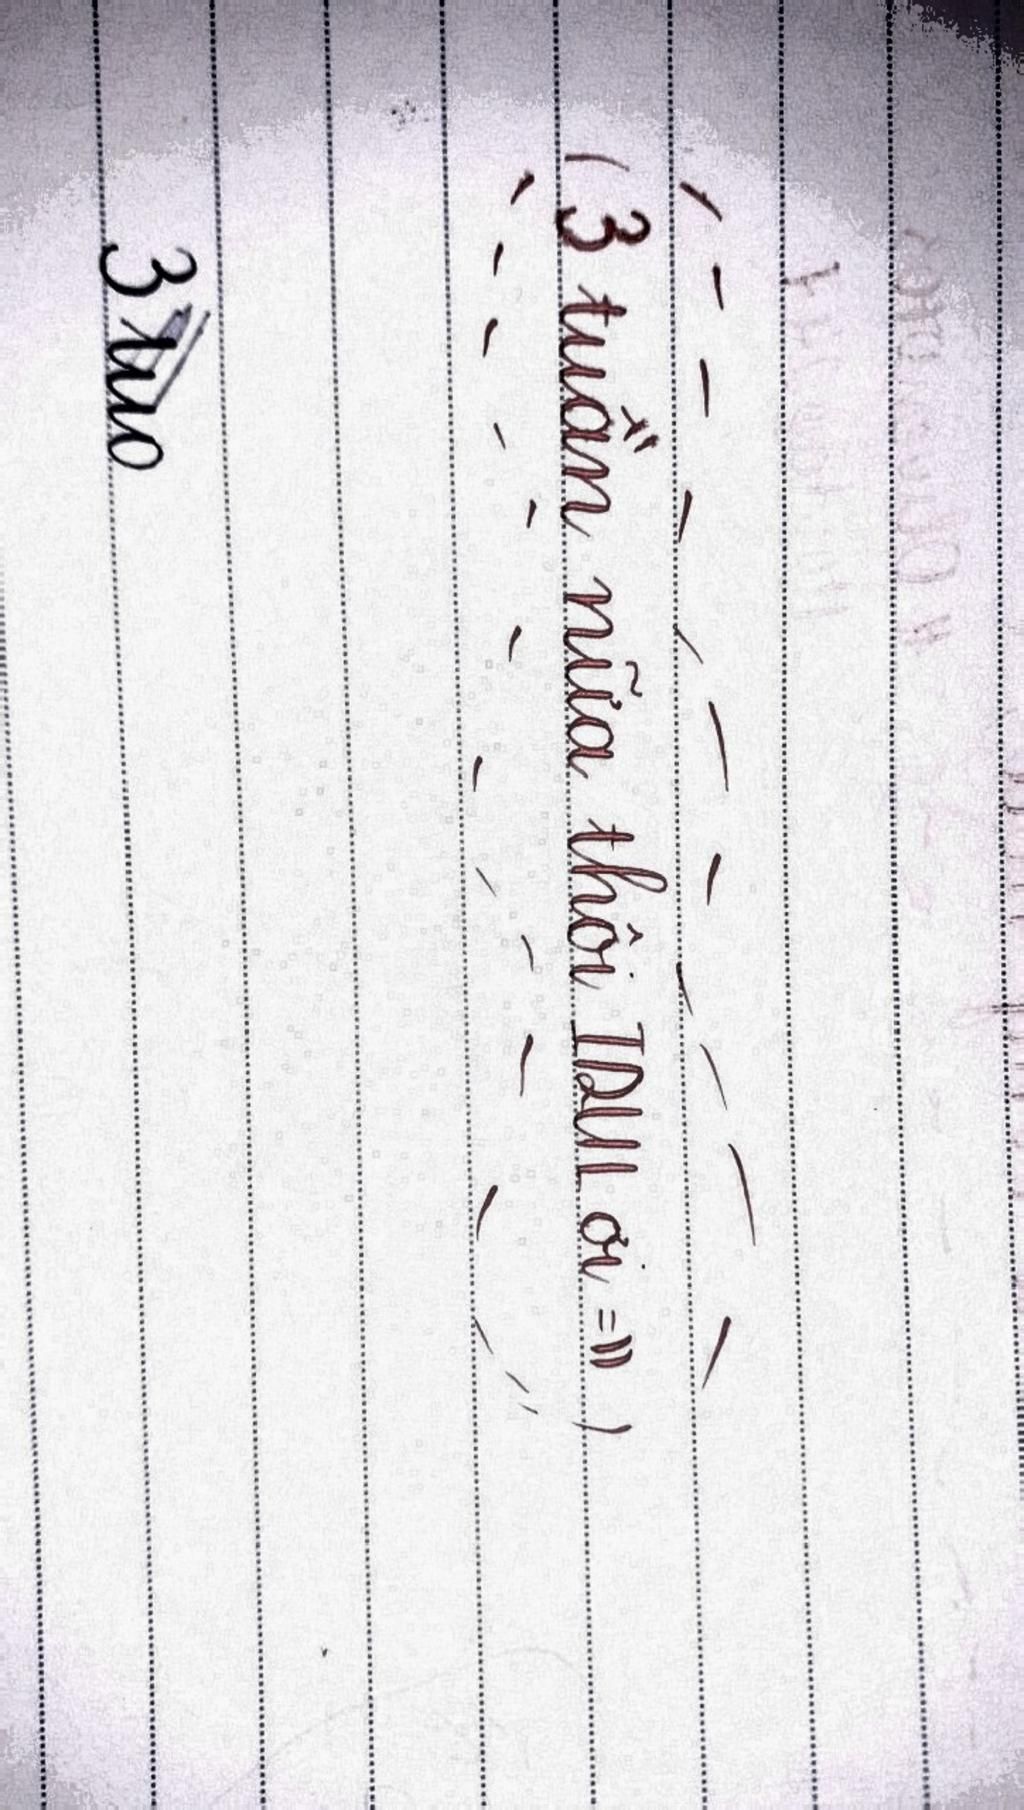 (3 tuần nữa thôi IDUII ơi =)))
3 tuo